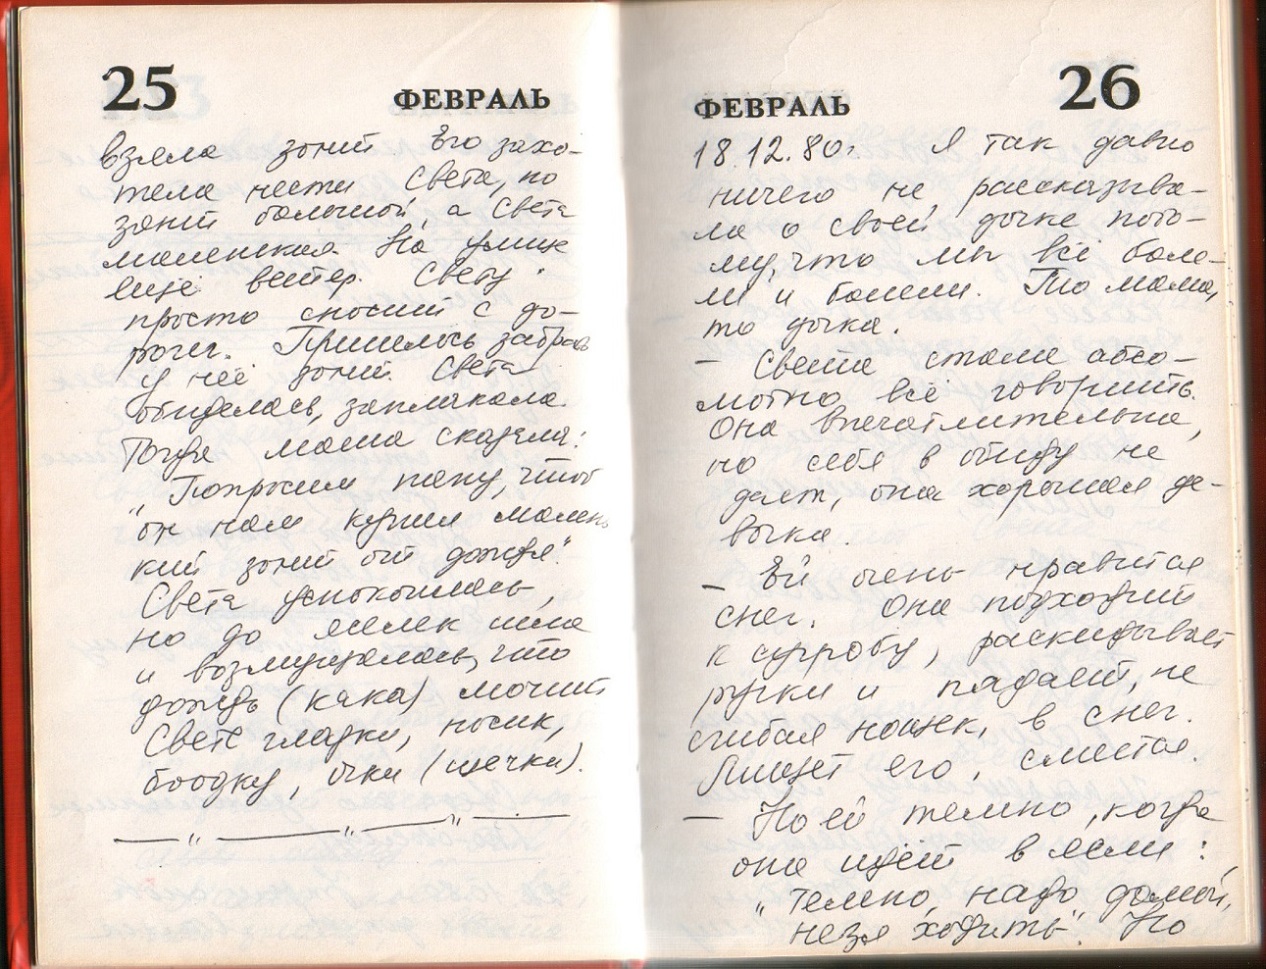 25 ФЕВРАЛЬ
взяла зонт Его захо-
тела нести Света, но
зонт большой а Света
маленькая На улице
ещё ветер. Свету
просто сносит с до-
роги. Пришлось забрать
у неё зонт. Света
обиделась, заплакала.
Тогда мама сказала:
"Попросим папу, чтоб
он нам купил малень
кий зонт от дождя."
Света успокоилась,
но до яселек шла
и возмущалась, что
дождь (кака) мочит
Свете гладки, носик,
боодку, очки (щечки).
26 ФЕВРАЛЬ
18.12.80г. Я так давно
ничего не рассказыва-
ла о своей дочке пото-
му, что мы всё боле-
ли и болели. То мама,
то дочка.
– Света стала абсо-
лютно всё говорить.
Она впечатлительна,
но себя в обиду не
даст, она хорошая де-
вочка.
– Ей очень нравится
снег. Она подходит
к сугробу, раскидывает
ручки и падает, не
сгибая ножек, в снег.
Лижет его, смеется.
– Но ей темно, когда
она идёт в ясли:
"Темно, надо домой,
незя ходить". Но